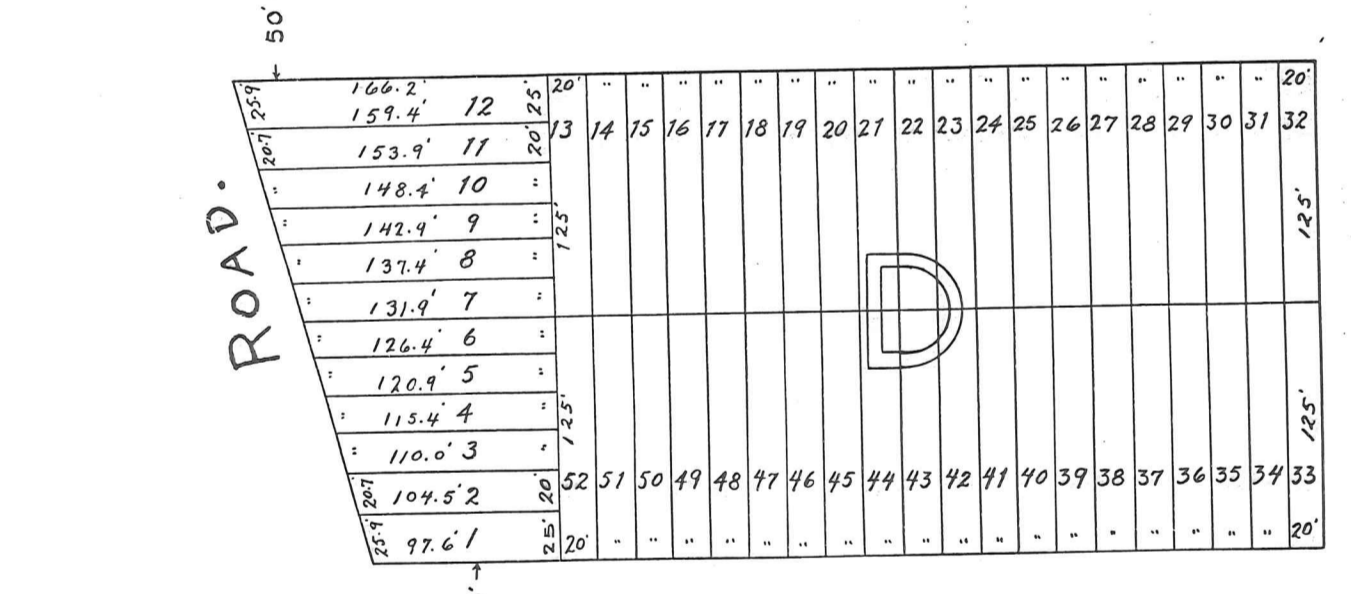 50'
ROAD.
25.9 166.2' 25'
159.4' 12
20.7 153.9' 11 20'
" 148.4' 10 "
" 142.9' 9 "
" 137.4' 8 "
" 131.9' 7 "
" 126.4' 6 "
" 120.9' 5 "
" 115.4' 4 "
" 110.0' 3 "
20.7 104.5' 2 20'
25.9' 97.6' 1 25'
20' " " " " " " " " " " " " " " " " " " 20'
13 14 15 16 17 18 19 20 21 22 23 24 25 26 27 28 29 30 31 32
125' 125'
D
125' 125'
52 51 50 49 48 47 46 45 44 43 42 41 40 39 38 37 36 35 34 33
20' " " " " " " " " " " " " " " " " " " 20'